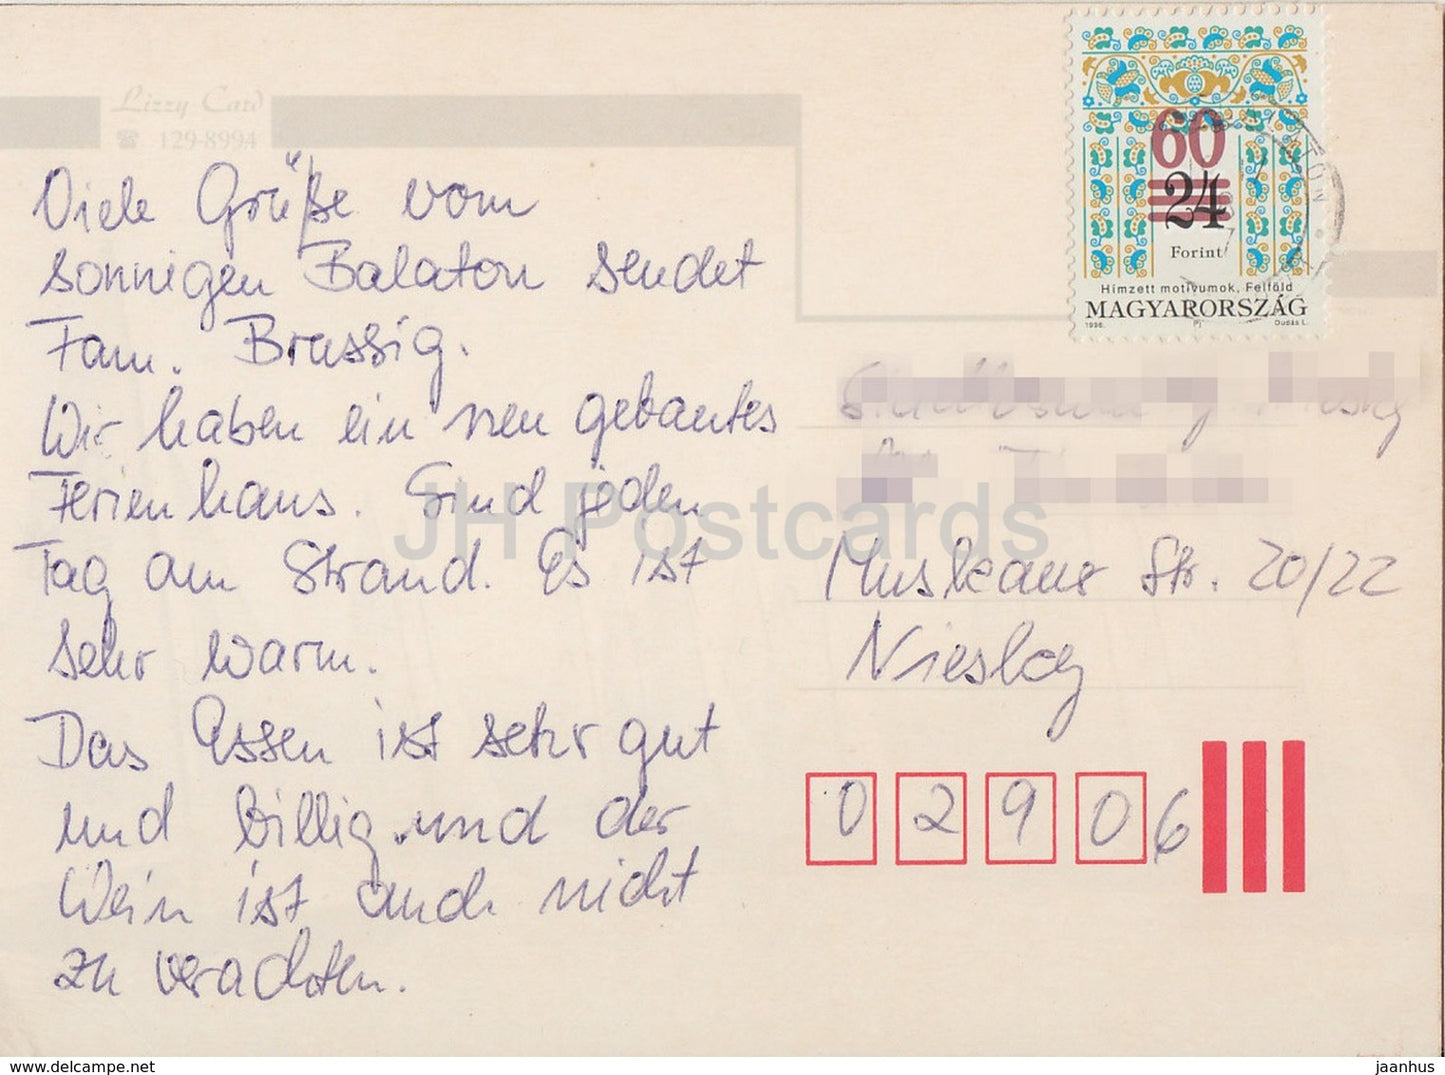 Lizzy Card
☎ 129-8994
Viele Grüße vom
sonnigen Balaton sendet
Fam. Brassig.
Wir haben ein neu gebautes
Ferienhaus. Sind jeden
Tag am Strand. Es ist
sehr warm.
Das Essen ist sehr gut
und billig und der
Wein ist auch nicht
zu verachten.
60
24
Forint
Hímzett motívumok, Felföld
MAGYARORSZÁG
1996.
Dudás L.
Muskauer Str. 20/22
Niesky
02906
JH Postcards
www.delcampe.net
jaanhus